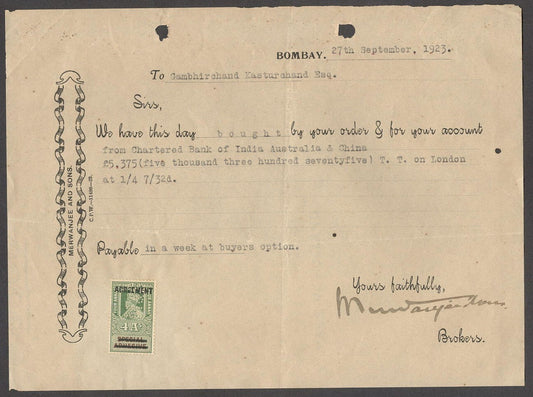 BOMBAY, 27th September, 1923.
To Gambhirchand Kasturchand Esq.
Sirs,
We have this day bought by your order & for your account
from Chartered Bank of India Australia & China
£5,375(five thousand three hundred seventyfive) T. T. on London
at 1/4 7/32d.
Payable in a week at buyers option.
Yours faithfully,
Brokers.
MERWANJEE AND SONS.
AGREEMENT
4A
SPECIAL
ADHESIVE